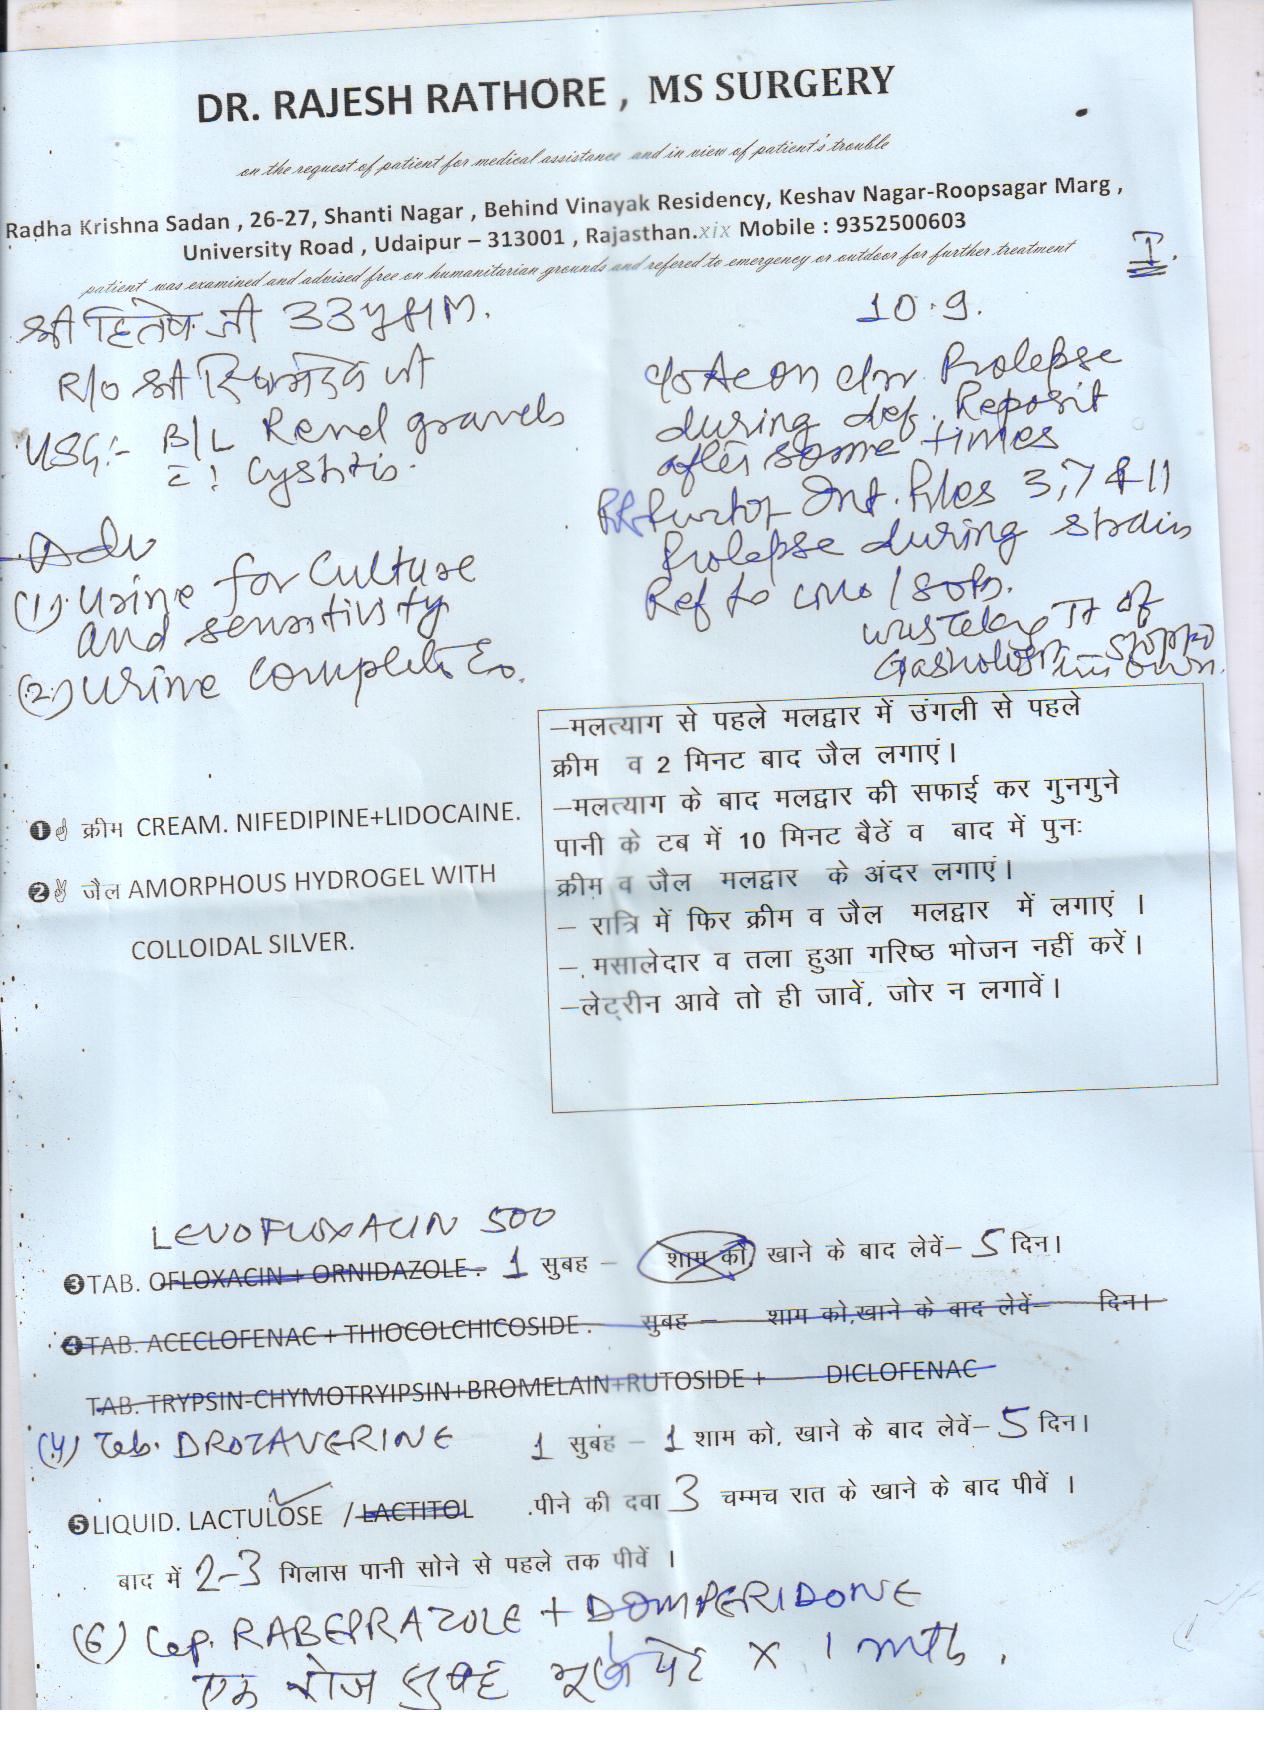 DR. RAJESH RATHORE , MS SURGERY
on the request of patient for medical assistance and in view of patient's trouble
Radha Krishna Sadan , 26-27, Shanti Nagar , Behind Vinayak Residency, Keshav Nagar-Roopsagar Marg ,
University Road , Udaipur – 313001 , Rajasthan.xix Mobile : 9352500603
patient was examined and advised free on humanitarian grounds and refered to emergency or outdoor for further treatment
I.
श्री हितेष जी 33y M.
R/O श्री जी
USG:- B/L Renal gravels
c̄ ? Cystitis.
Adv
(1) Urine for Culture
and sensitivity
(2) Urine complete Ex.
10.9.
c/o Prolepse
during def. Reposit
after some times
Int. Piles 3,7 & 11
Prolepse during strain
Ref to
Tt of
stopped
❶☝ क्रीम CREAM. NIFEDIPINE+LIDOCAINE.
❷✌ जैल AMORPHOUS HYDROGEL WITH
COLLOIDAL SILVER.
–मलत्याग से पहले मलद्वार में उंगली से पहले
क्रीम व 2 मिनट बाद जैल लगाएं।
–मलत्याग के बाद मलद्वार की सफाई कर गुनगुने
पानी के टब में 10 मिनट बैठें व बाद में पुनः
क्रीम व जैल मलद्वार के अंदर लगाएं।
– रात्रि में फिर क्रीम व जैल मलद्वार में लगाएं ।
–. मसालेदार व तला हुआ गरिष्ठ भोजन नहीं करें।
–लेट्रीन आवे तो ही जावें, जोर न लगावें।
LEVOFLOXACIN 500
❸TAB. OFLOXACIN + ORNIDAZOLE . 1 सुबह – शाम को, खाने के बाद लेवें– 5 दिन।
❹TAB. ACECLOFENAC + THIOCOLCHICOSIDE . सुबह – शाम को,खाने के बाद लेवें– दिन।
TAB. TRYPSIN-CHYMOTRYIPSIN+BROMELAIN+RUTOSIDE + DICLOFENAC
(4) Tab. DROTAVERINE 1 सुबंह – 1 शाम को, खाने के बाद लेवें– 5 दिन।
❺LIQUID. LACTULOSE / LACTITOL .पीने की दवा 3 चम्मच रात के खाने के बाद पीवें ।
बाद में 2-3 गिलास पानी सोने से पहले तक पीवें ।
(6) Cap. RABEPRAZOLE + DOMPERIDONE
एक रोज सुबह भूखे पेट x 1 mth.